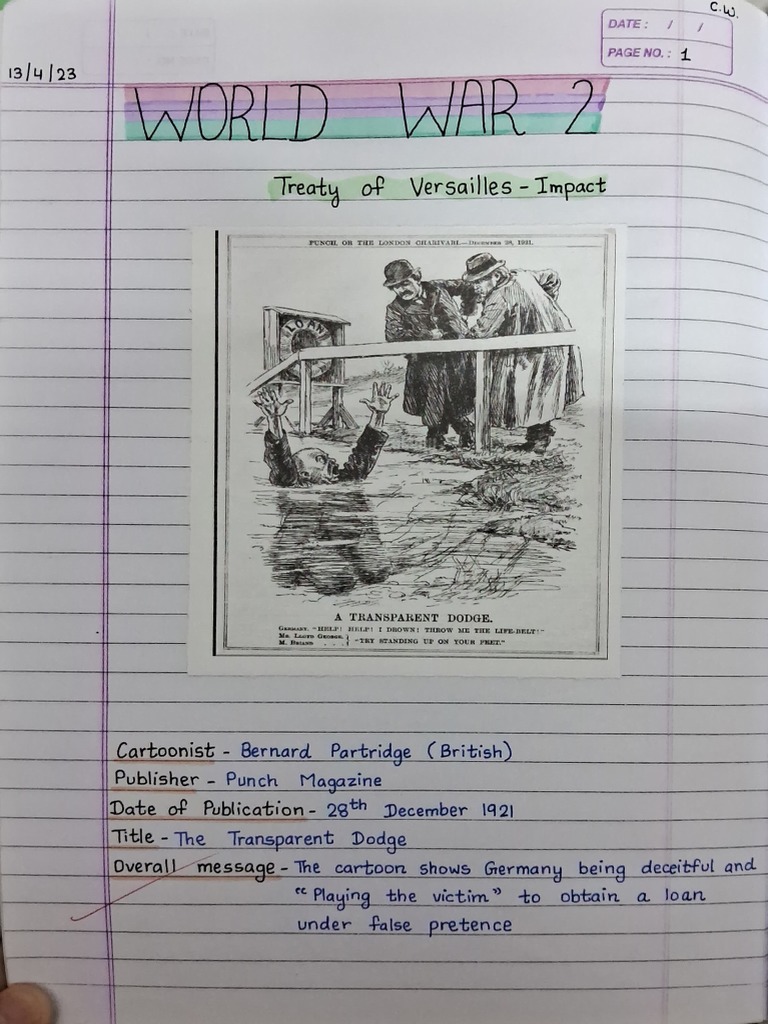 C.W.
DATE: / /
PAGE NO.: 1
13/4/23
WORLD WAR 2
Treaty of Versailles - Impact
PUNCH, OR THE LONDON CHARIVARI.—DECEMBER 28, 1921.
LOAN
A TRANSPARENT DODGE.
GERMANY. "HELP! HELP! I DROWN! THROW ME THE LIFE-BELT!"
MR. LLOYD GEORGE. } "TRY STANDING UP ON YOUR FEET."
M. BRIAND . . . .
Cartoonist - Bernard Partridge (British)
Publisher - Punch Magazine
Date of Publication - 28th December 1921
Title - The Transparent Dodge
Overall message - The cartoon shows Germany being deceitful and
"Playing the victim" to obtain a loan
under false pretence